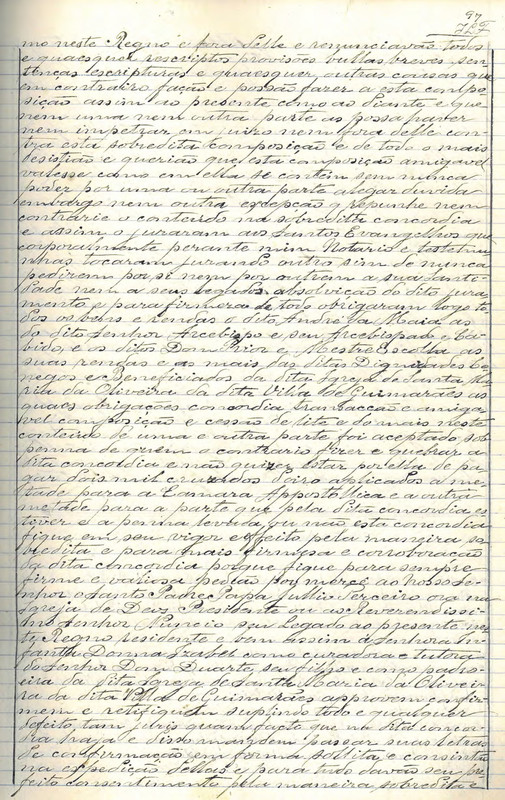 97
mo neste Regno e fora delle e renunciavão todos
e quaesquer rescriptos provisões bullas breves sen
tenças escripturas e quaesquer outras cousas que
em contrario fação e possão fazer a esta compo
sição assim ao presente como ao diante e que
nem uma nem outra parte as possa haver
nem impetrar em juizo nem fora delle con
tra esta sobredita composição e de todo o mais
desistião e querião que esta composição amigavel
valesse como em ella se contem sem nunca
poder por uma ou outra parte alegar duvida
embargo nem outra excepção q repunhe nem
contrarie o conteudo na sobredita concordia
e assim o juraram aos Santos Evangelhos que
corporalmente perante mim Notario e testemu
nhas tocaram jurando outro sim de nunca
pedirem por si nem por outrem a sua Santi
dade nem a seus legados absolvição do dito jura
mento e para firmeza de todo obrigaram logo to
dos os bens e rendas o dito André da Maia as
do dito Senhor Arcebispo e seu Arcebispado e Ca
bido, e os ditos Dom Prior e Mestre Escolla as
suas rendas e as mais das ditas Dignidades Co
negos e Beneficiados da dita Igreja de Santa Ma
ria da Oliveira da dita Villa de Guimarães as
quaes obrigações concordia transacção e amiga
vel composição e cessão de lite e do mais neste
conteudo de uma e outra parte foi aceptado sob
penna de quem o contrario fizer e quebrar a
dita concordia e não quizer estar por ella de pa
gar dois mil cruzados d'oiro aplicados a me
tade para a Camara Appostolica e a outra
metade para a parte que pela dita concordia es
tiver e a penna levada ou não esta concordia
fique em seu vigor e effeito pela maneira so
bredita e para mais firmesa e corroboração
da dita concordia porque fique para sempre
firme e valiosa pedião por mercê ao nosso Se
nhor o Santo Padre Papa Julio Terceiro ora na
Igreja de Deus Presidente ou ao Reverendissi
mo Senhor Nuncio seu legado ao presente nes
te Regno residente e bem assim á Senhora In
fanta Donna Izabel como curadora e tutora
do Senhor Dom Duarte, seu filho e como padro
eira da dita Igreja de Santa Maria da Olivei
ra da dita Villa de Guimarães approvem confir
mem e retifiquem suprindo todo e qualquer
defeito tam juris quam facto que na dita concor
dia haja e disso mandem passar suas letras
de confirmação em forma solita e consintão
na expedição dellas e para tudo davão seu per
feito consentimento pela maneira sobredita e